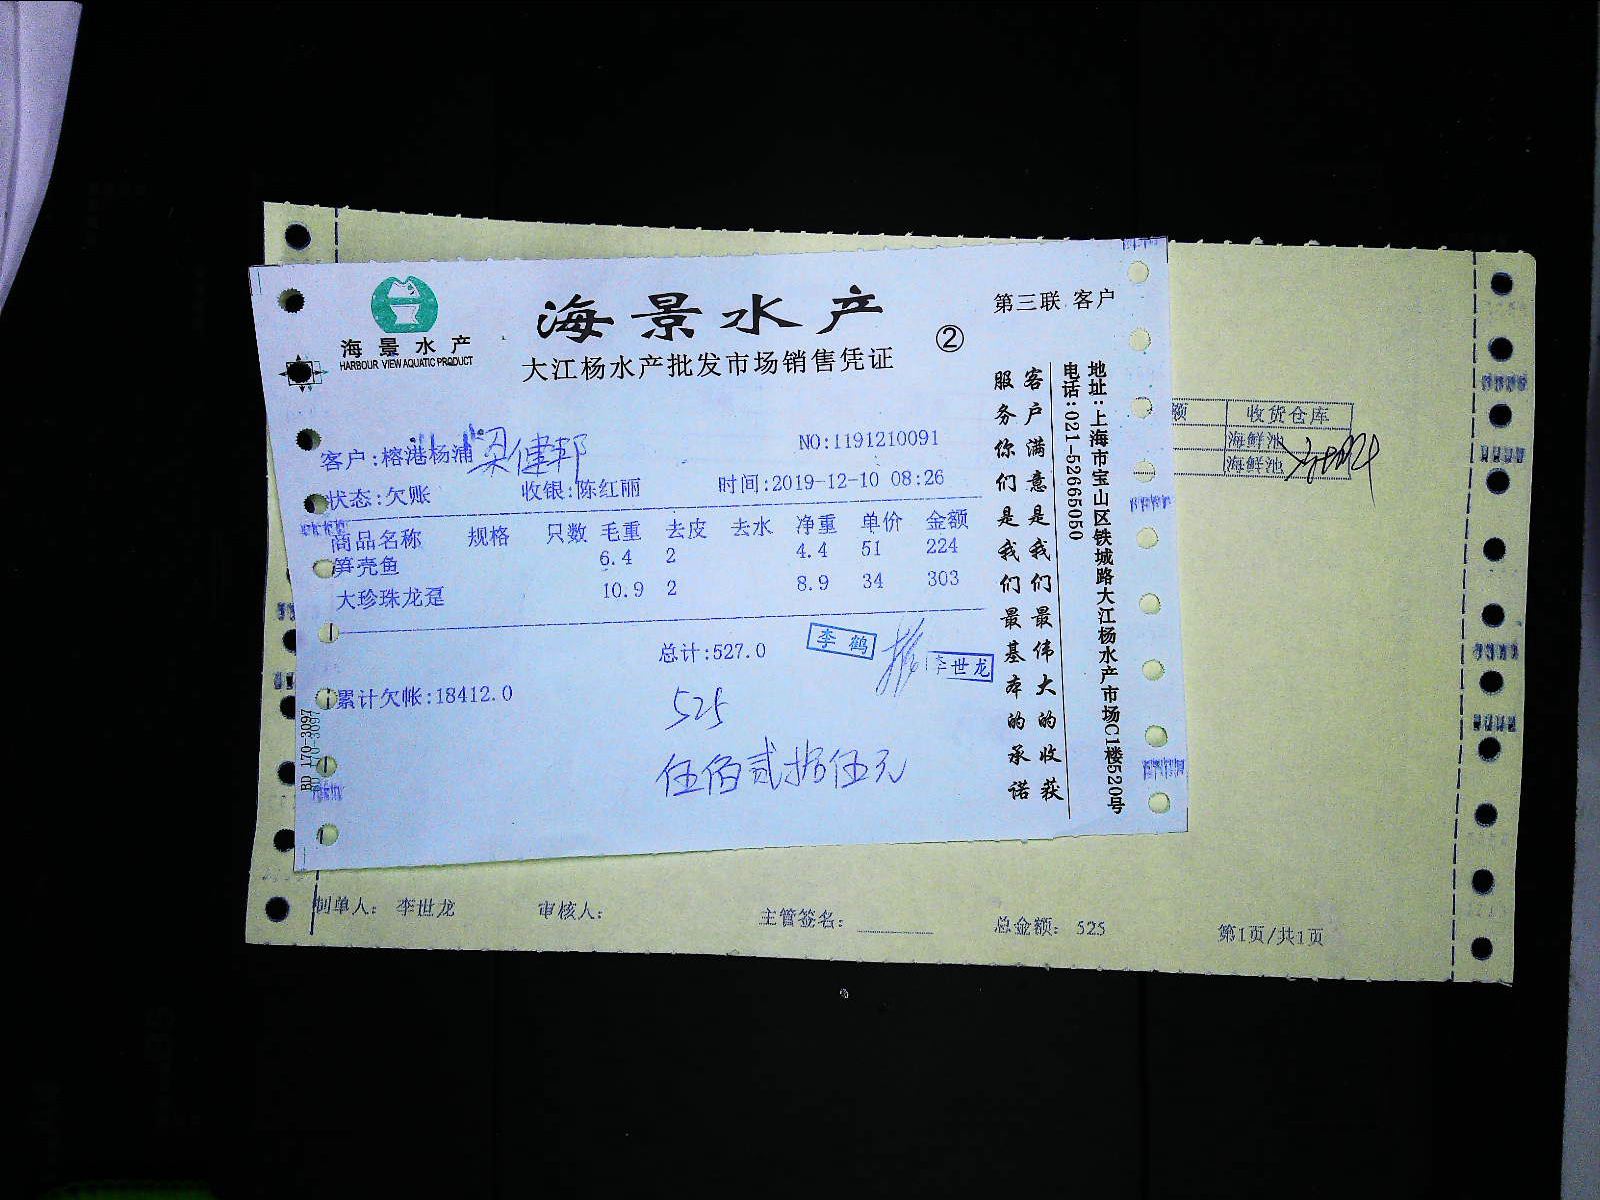 海景水产
HARBOUR VIEW AQUATIC PRODUCT
海景水产
大江杨水产批发市场销售凭证
②
第三联 客户
客户:榕港杨浦 梁健邦
NO:1191210091
状态:欠账 收银:陈红丽 时间:2019-12-10 08:26
商品名称 规格 只数 毛重 去皮 去水 净重 单价 金额
笋壳鱼 6.4 2 4.4 51 224
大珍珠龙趸 10.9 2 8.9 34 303
总计:527.0
李鹤
李世龙
累计欠帐:18412.0
525
伍佰贰拾伍元
BD 170-3097
客户满意是我们最伟大的收获
服务你们是我们最基本的承诺
地址:上海市宝山区铁城路大江杨水产市场C1楼520号
电话:021-52665050
额 收货仓库
海鲜池
海鲜池
制单人: 李世龙 审核人: 主管签名: 总金额: 525 第1页/共1页